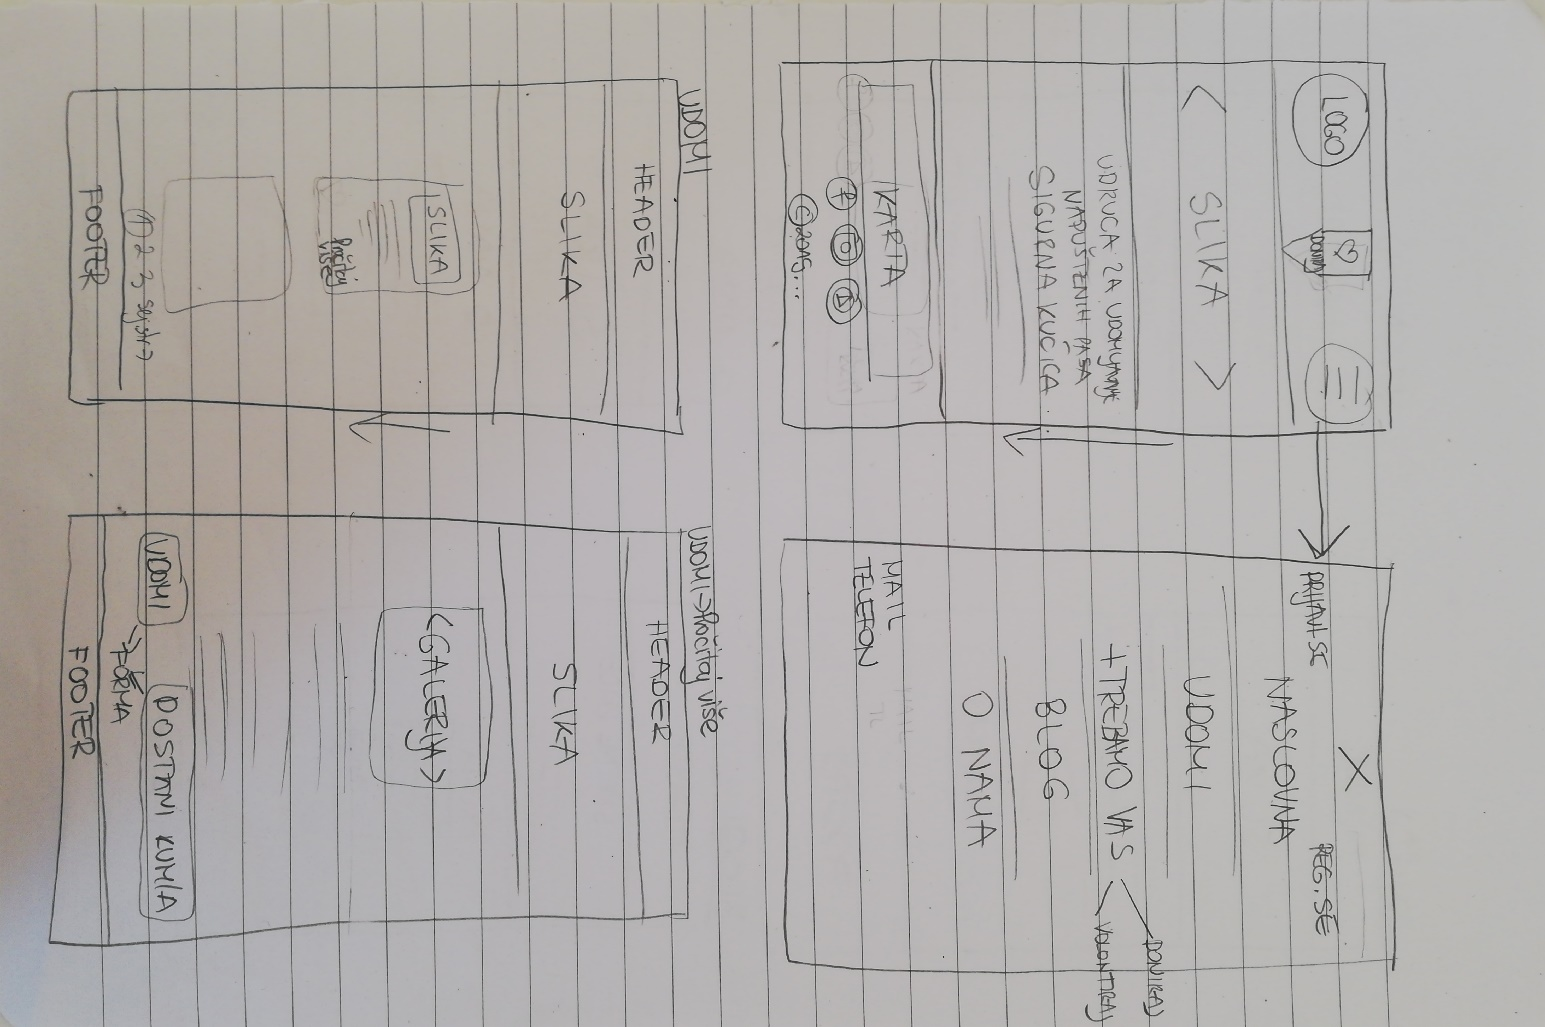 LOGO
UDOMI
< SLIKA >
UDRUGA ZA UDOMLJAVANJE
NAPUŠTENIH PASA
SIGURNA KUĆICA
KARTA
f
©2015...
X
PRIJAVI SE
REG. SE
NASLOVNA
UDOMI
+ TREBAMO VAS
DONIRAJ
VOLONTIRAJ
BLOG
O NAMA
MAIL
TELEFON
UDOMI
HEADER
SLIKA
SLIKA
Pročitaj
VIŠE
1 2 3 slijed. >
FOOTER
UDOMI → Pročitaj više
HEADER
SLIKA
< GALERIJA >
UDOMI
POSTANI KUM/A
→ FORMA
FOOTER